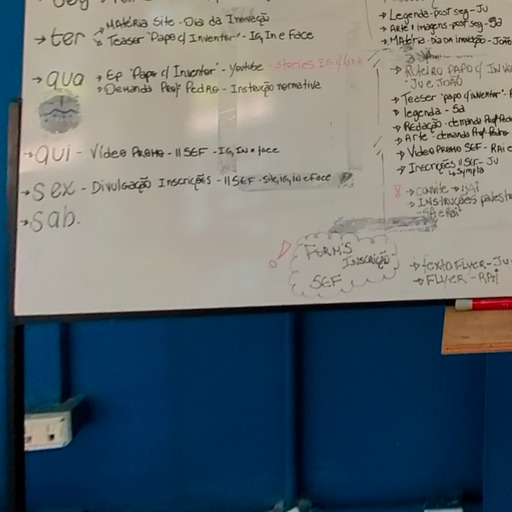 → ter → MATÉRIA SITE - DIA DA INOVAÇÃO
→ TEASER "PAPO C/ INVENTOR" - IG, IN e FACE
→ qua → EP "PAPO C/ INVENTOR" - YOUTUBE - STORIES IG
→ DEMANDA PROFº PEDRO - INSTRUÇÃO NORMATIVA
→ qui - VÍDEO PROMO - II SGF - IG, IN e FACE
→ sex - DIVULGAÇÃO INSCRIÇÕES - II SGF - SITE, IG, IN e FACE
→ sab.
! FORMS
INSCRIÇÃO
SGF
→ LEGENDA - POST SEG - JU
→ ARTE + IMAGENS - POST SEG - SD
→ MATÉRIA - DIA DA INOVAÇÃO - JOÃO
→ ROTEIRO PAPO C/ INV
JU e JOÃO
→ TEASER "PAPO C/ INVENTOR" -
→ LEGENDA - SD
→ REDAÇÃO - DEMANDA PROFº PEDRO
→ ARTE - DEMANDA PROFº PEDRO
→ VÍDEO PROMO SGF - RAI e
→ INSCRIÇÕES II SGF - JU
↳ SYMPLA
→ CONVITE → RAI
→ INSTRUÇÕES PALEST
→ TEXTO FLYER - JU
→ FLYER - RAI